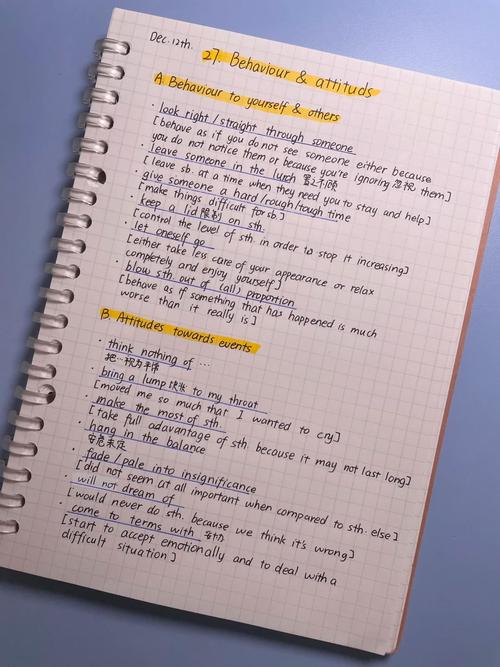 Dec. 12th.
27. Behaviour & attituds
A. Behaviour to yourself & others
· look right / straight through someone
[behave as if you do not see someone either because
you do not notice them or because you're ignoring 忽视 them]
· leave someone in the lurch 置之不顾
[leave sb. at a time when they need you to stay and help]
· give someone a hard/rough/tough time
[make things difficult for sb]
· keep a lid 限制 on sth.
[control the level of sth. in order to stop it increasing]
· let oneself go
[either take less care of your appearance or relax
completely and enjoy yourself]
· blow sth. out of (all) proportion
[behave as if something that has happened is much
worse than it really is]
B. Attitudes towards events
· think nothing of ...
把...视为平常
· bring a lump 块状 to my throat
[moved me so much that I wanted to cry]
· make the most of sth.
[take full adavantage of sth. because it may not last long]
· hang in the balance
安危未定
· fade / pale into insignificance
[did not seem at all important when compared to sth. else]
· will not dream of
[would never do sth. because we think it's wrong]
· come to terms with
[start to accept emotionally and to deal with a
difficult situation]